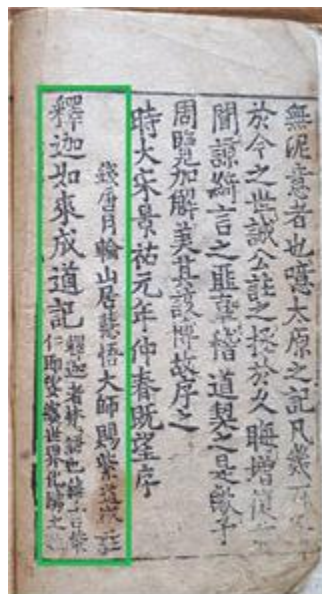 無泥意者也噫太原之記凡幾
於今之世誠公註之採於久晦增
聞諒綺言之匪辜稽道契之是歟予
周覽加解美其該博故序之
時大宋景祐元年仲春既望序
錢唐月輪山居慧悟大師賜紫道誠註
釋迦如來成道記 釋迦者梵語也